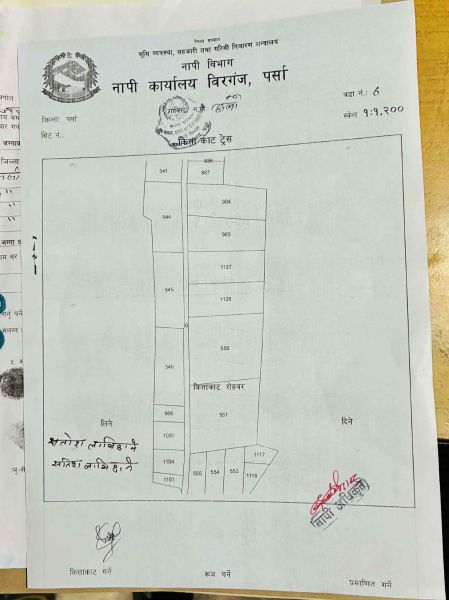 नेपाल सरकार
भूमि व्यवस्था, सहकारी तथा गरिबी निवारण मन्त्रालय
नापी विभाग
नापी कार्यालय विरगंज, पर्सा
जिल्ला: पर्सा
न.पा.
वडा नं.: ६
सिट नं.
स्केल १:१,२००
कित्ता काट ट्रेस
541
686
687
544
904
905
1127
545
1128
550
546
कित्ताकाट रोहवर
966
551
1093
लिने
दिने
1104
1103
555
554
553
1117
1118
नापी अधिकृत
कित्ताकाट गर्ने
रूजु गर्ने
प्रमाणित गर्ने